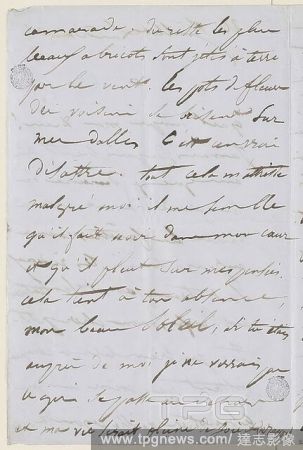 camarade. du reste les plus
beaux abricots sont jetés à terre
par le vent. les pots de fleurs
des voisins se brisent sur
mes dalles C'est un vrai
désastre. tout cela m'attriste
malgré moi. il me semble
qu'il fait noir dans mon cœur
et qu'il pleut sur mes
cela tient à ton absence,
mon beau Soleil, si tu étais
auprès de moi, je ne verrais pas
ce qui se passe
et ma vie serait pleine
TPG
www.tpgnews.com / 達志影像